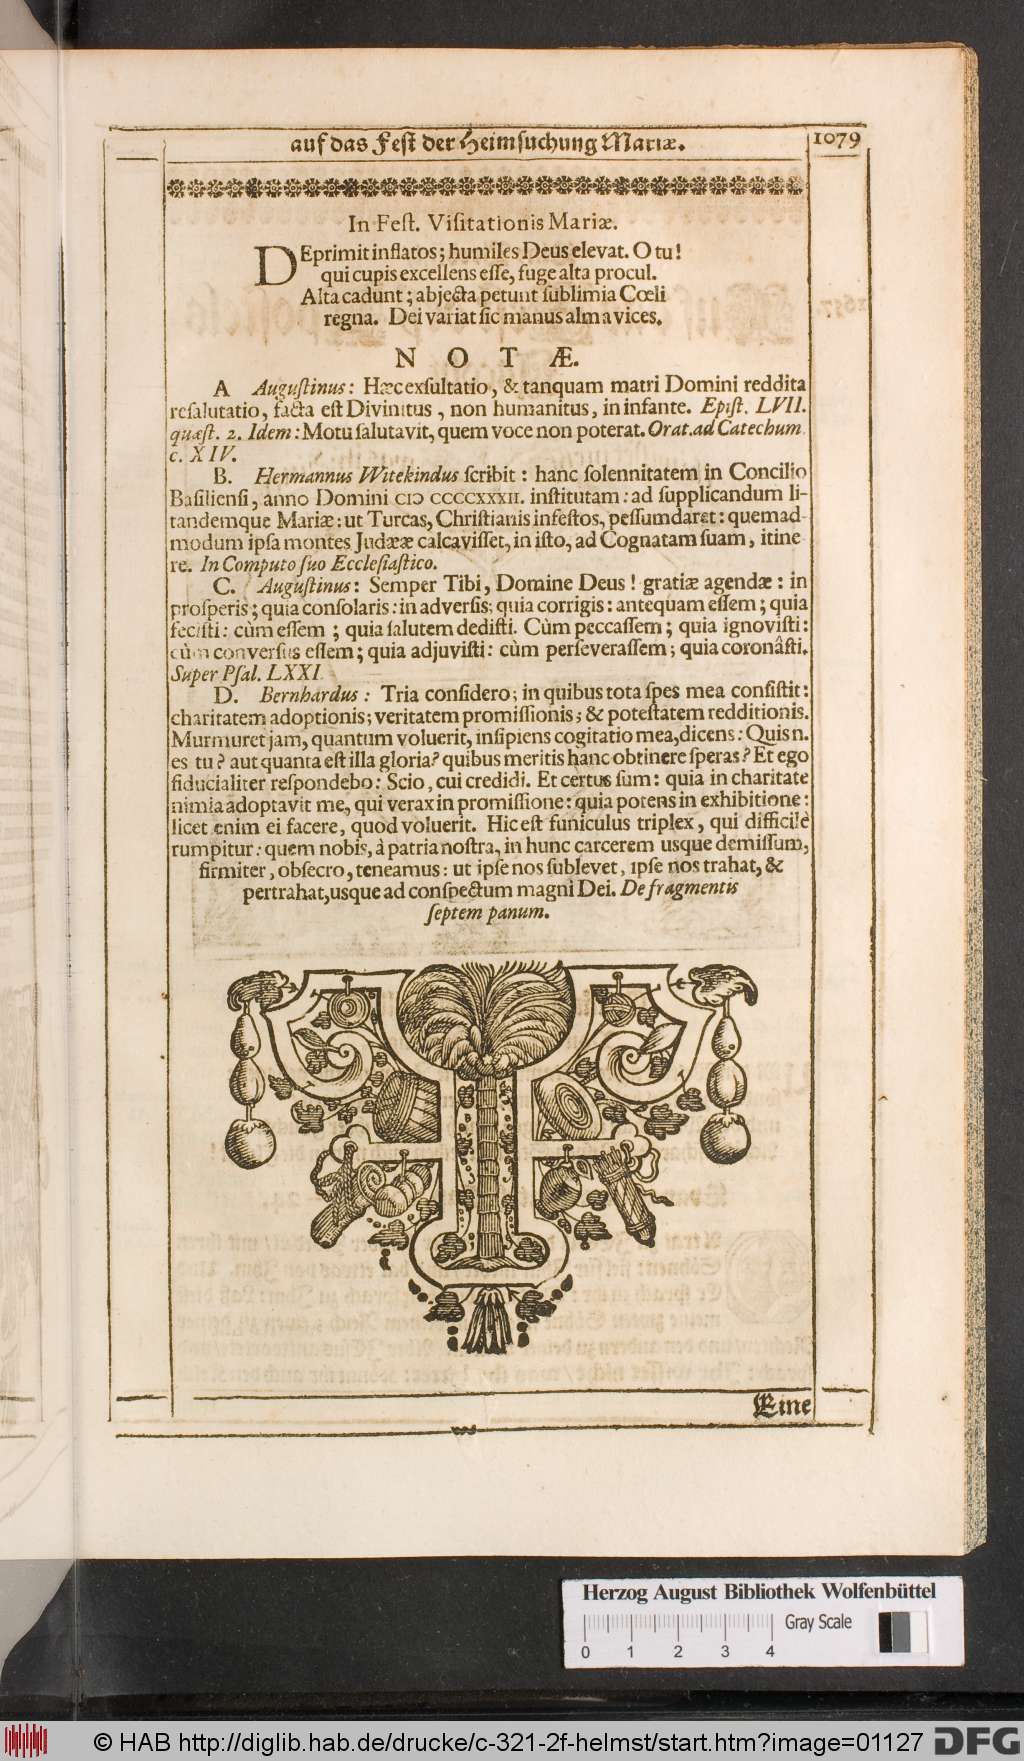 auf das Fest der Heimsuchung Mariæ.
1079
In Feſt. Viſitationis Mariæ.
DEprimit inflatos; humiles Deus elevat. O tu!
qui cupis excellens eſſe, fuge alta procul.
Alta cadunt; abjecta petunt ſublimia Cœli
regna. Dei variat ſic manus alma vices.
NOTÆ.
A Auguſtinus: Hæc exſultatio, & tanquam matri Domini reddita
reſalutatio, facta eſt Divinitus, non humanitus, in infante. Epiſt. LVII.
quæſt. 2. Idem: Motu ſalutavit, quem voce non poterat. Orat. ad Catechum.
c. XIV.
B. Hermannus Witekindus ſcribit: hanc ſolennitatem in Concilio
Baſilienſi, anno Domini CIƆ CCCCXXXII. inſtitutam: ad ſupplicandum li-
tandemque Mariæ: ut Turcas, Chriſtianis infeſtos, peſſumdaret: quemad-
modum ipſa montes Judææ calcaviſſet, in iſto, ad Cognatam ſuam, itine
re. In Computo ſuo Eccleſiaſtico.
C. Auguſtinus: Semper Tibi, Domine Deus! gratiæ agendæ: in
proſperis; quia conſolaris: in adverſis; quia corrigis: antequam eſſem; quia
feciſti: cùm eſſem; quia ſalutem dediſti. Cùm peccaſſem; quia ignovîſti:
cùm converſus eſſem; quia adjuviſti: cùm perſeveraſſem; quia coronâſti.
Super Pſal. LXXI.
D. Bernhardus: Tria conſidero; in quibus tota ſpes mea conſiſtit:
charitatem adoptionis; veritatem promiſſionis; & poteſtatem redditionis.
Murmuret jam, quantum voluerit, inſipiens cogitatio mea, dicens: Quis n.
es tu? aut quanta eſt illa gloria? quibus meritis hanc obtinere ſperas? Et ego
fiducialiter reſpondebo: Scio, cui credidi. Et certus ſum: quia in charitate
nimia adoptavit me, qui verax in promiſſione: quia potens in exhibitione:
licet enim ei facere, quod voluerit. Hic eſt funiculus triplex, qui difficilè
rumpitur: quem nobis, à patria noſtra, in hunc carcerem usque demiſſum,
firmiter, obſecro, teneamus: ut ipſe nos ſublevet, ipſe nos trahat, &
pertrahat, usque ad conſpectum magni Dei. De fragmentis
ſeptem panum.
Eine
Herzog August Bibliothek Wolfenbüttel
Gray Scale
0 1 2 3 4
© HAB http://diglib.hab.de/drucke/c-321-2f-helmst/start.htm?image=01127
DFG